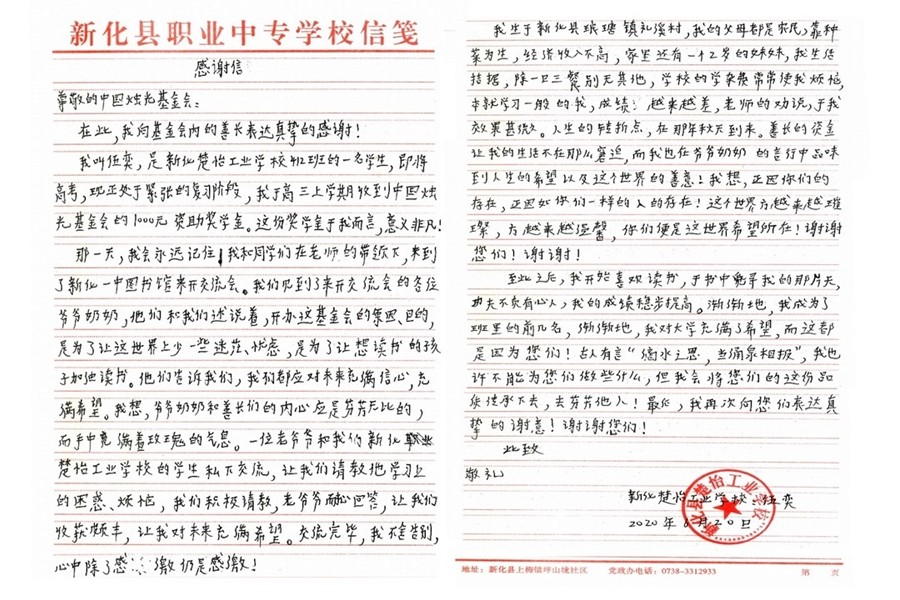 新化县职业中专学校信笺
感谢信
尊敬的中国烛光基金会：
在此，我向基金会内的善长表达真挚的感谢！
我叫伍奕，是新化楚怡工业学校412班的一名学生，即将
高考，现正处于紧张的复习阶段，我于高三上学期收到中国烛
光基金会的1000元资助奖学金。这份奖学金于我而言，意义非凡！
那一天，我会永远记住，我和同学们在老师的带领下，来到
了新化一中图书馆来开交流会。我们见到了来开交流会的各位
爷爷奶奶，他们和我们述说着，开办这基金会的原因、目的，
是为了让这世界上少一些迷茫、忧虑，是为了让想读书的孩
子加油读书。他们告诉我们，我们都应对未来充满信心，充
满希望。我想，爷爷奶奶和善长们的内心应是芬芳无比的，
而手中竟满着玫瑰的气息。一位老爷爷和我们新化职业
楚怡工业学校的学生私下交流，让我们请教他学习上
的困惑、烦恼，我们积极请教，老爷爷耐心回答，让我们
收获颇丰，让我对未来充满希望。交流完毕，我不舍告别，
心中除了感激仍是感激！
我生于新化县琅塘镇礼溪村，我的父母都是农民，靠种
菜为生，经济收入不高，家里还有一个2岁的妹妹，我生活
拮据，除一日三餐别无其他，学校的学杂费常常使我烦恼，
本就学习一般的我，成绩越来越差，老师的劝说，于我
效果甚微。人生的转折点，在那年秋天到来。善长的资金
让我的生活不在那么窘迫，而我也在爷爷奶奶的言行中品味
到人生的希望以及这个世界的善意！我想，正因你们的
存在，正因如你们一样的人的存在！这个世界方越来越璀
璨，方越来越温馨，你们便是这世界希望所在！谢谢
您们！谢谢！
至此之后，我开始喜欢读书，于书中觅寻我的那片天，
功夫不负有心人，我的成绩稳步提高。渐渐地，我成为了
班里的前几名，渐渐地，我对大学充满了希望，而这都
是因为您们！古人有言“滴水之恩，当涌泉相报”，我也
许不能为您们做些什么，但我会将您们的这份品
质传承下去，去芬芳他人！最后，我再次向您们表达真
挚的谢意！谢谢您们！
此致
敬礼
新化楚怡工业学校：伍奕
2020年6月20日
新化县楚怡工业学校
地址：新化县上梅镇坪山垅社区 党政办电话：0738-3312933 第 页